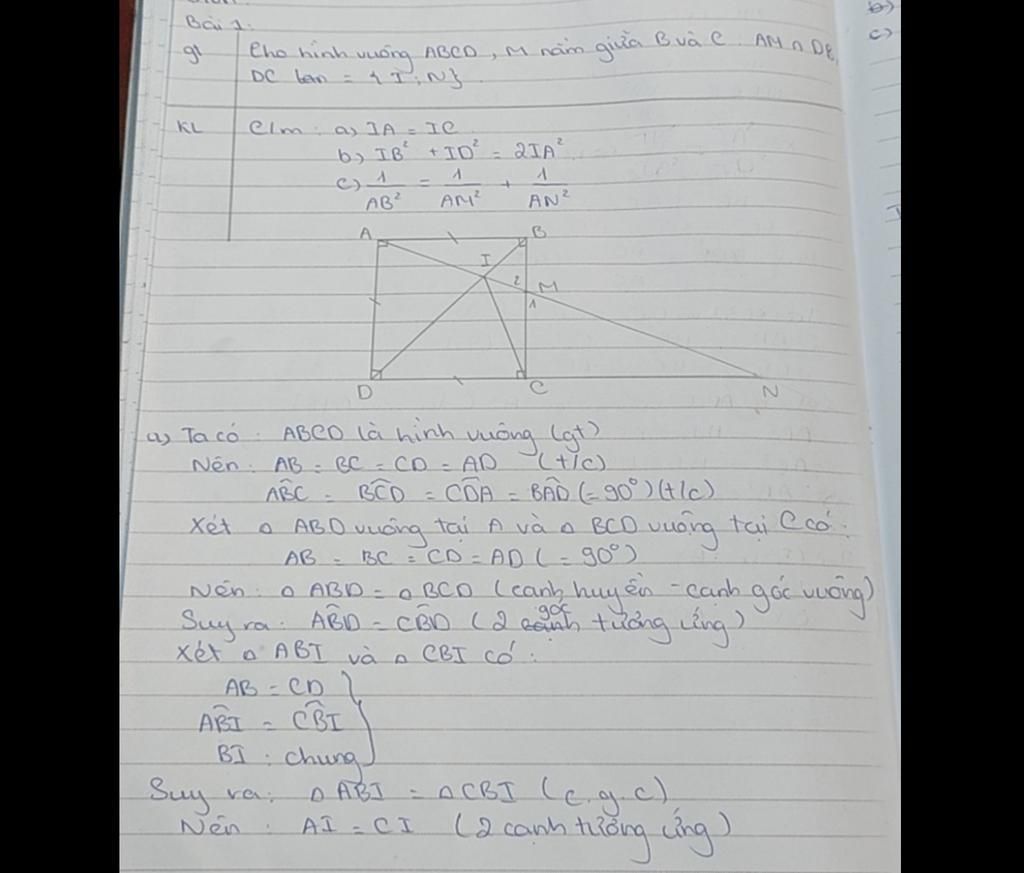 Bài 1:
b)
gt Cho hình vuông ABCD, M nằm giữa B và C. AM ∩ DB,
c)
DC lần = {I; N}
KL C/m: a) IA = IC
b) IB² + ID² = 2IA²
c) 1/AB² = 1/AM² + 1/AN²
A B
I
2 M
1
D C N
a) Ta có: ABCD là hình vuông (gt)
Nên: AB = BC = CD = AD (t/c)
ABC = BCD = CDA = BAD (= 90°) (t/c)
Xét Δ ABD vuông tại A và Δ BCD vuông tại C có:
AB = BC = CD = AD (= 90°)
Nên: Δ ABD = Δ BCD (cạnh huyền - cạnh góc vuông)
Suy ra: ABD = CBD (2 góc tương ứng)
Xét Δ ABI và Δ CBI có:
AB = CD
ABI = CBI
BI: chung
Suy ra: Δ ABI = Δ CBI (c.g.c)
Nên: AI = CI (2 cạnh tương ứng)